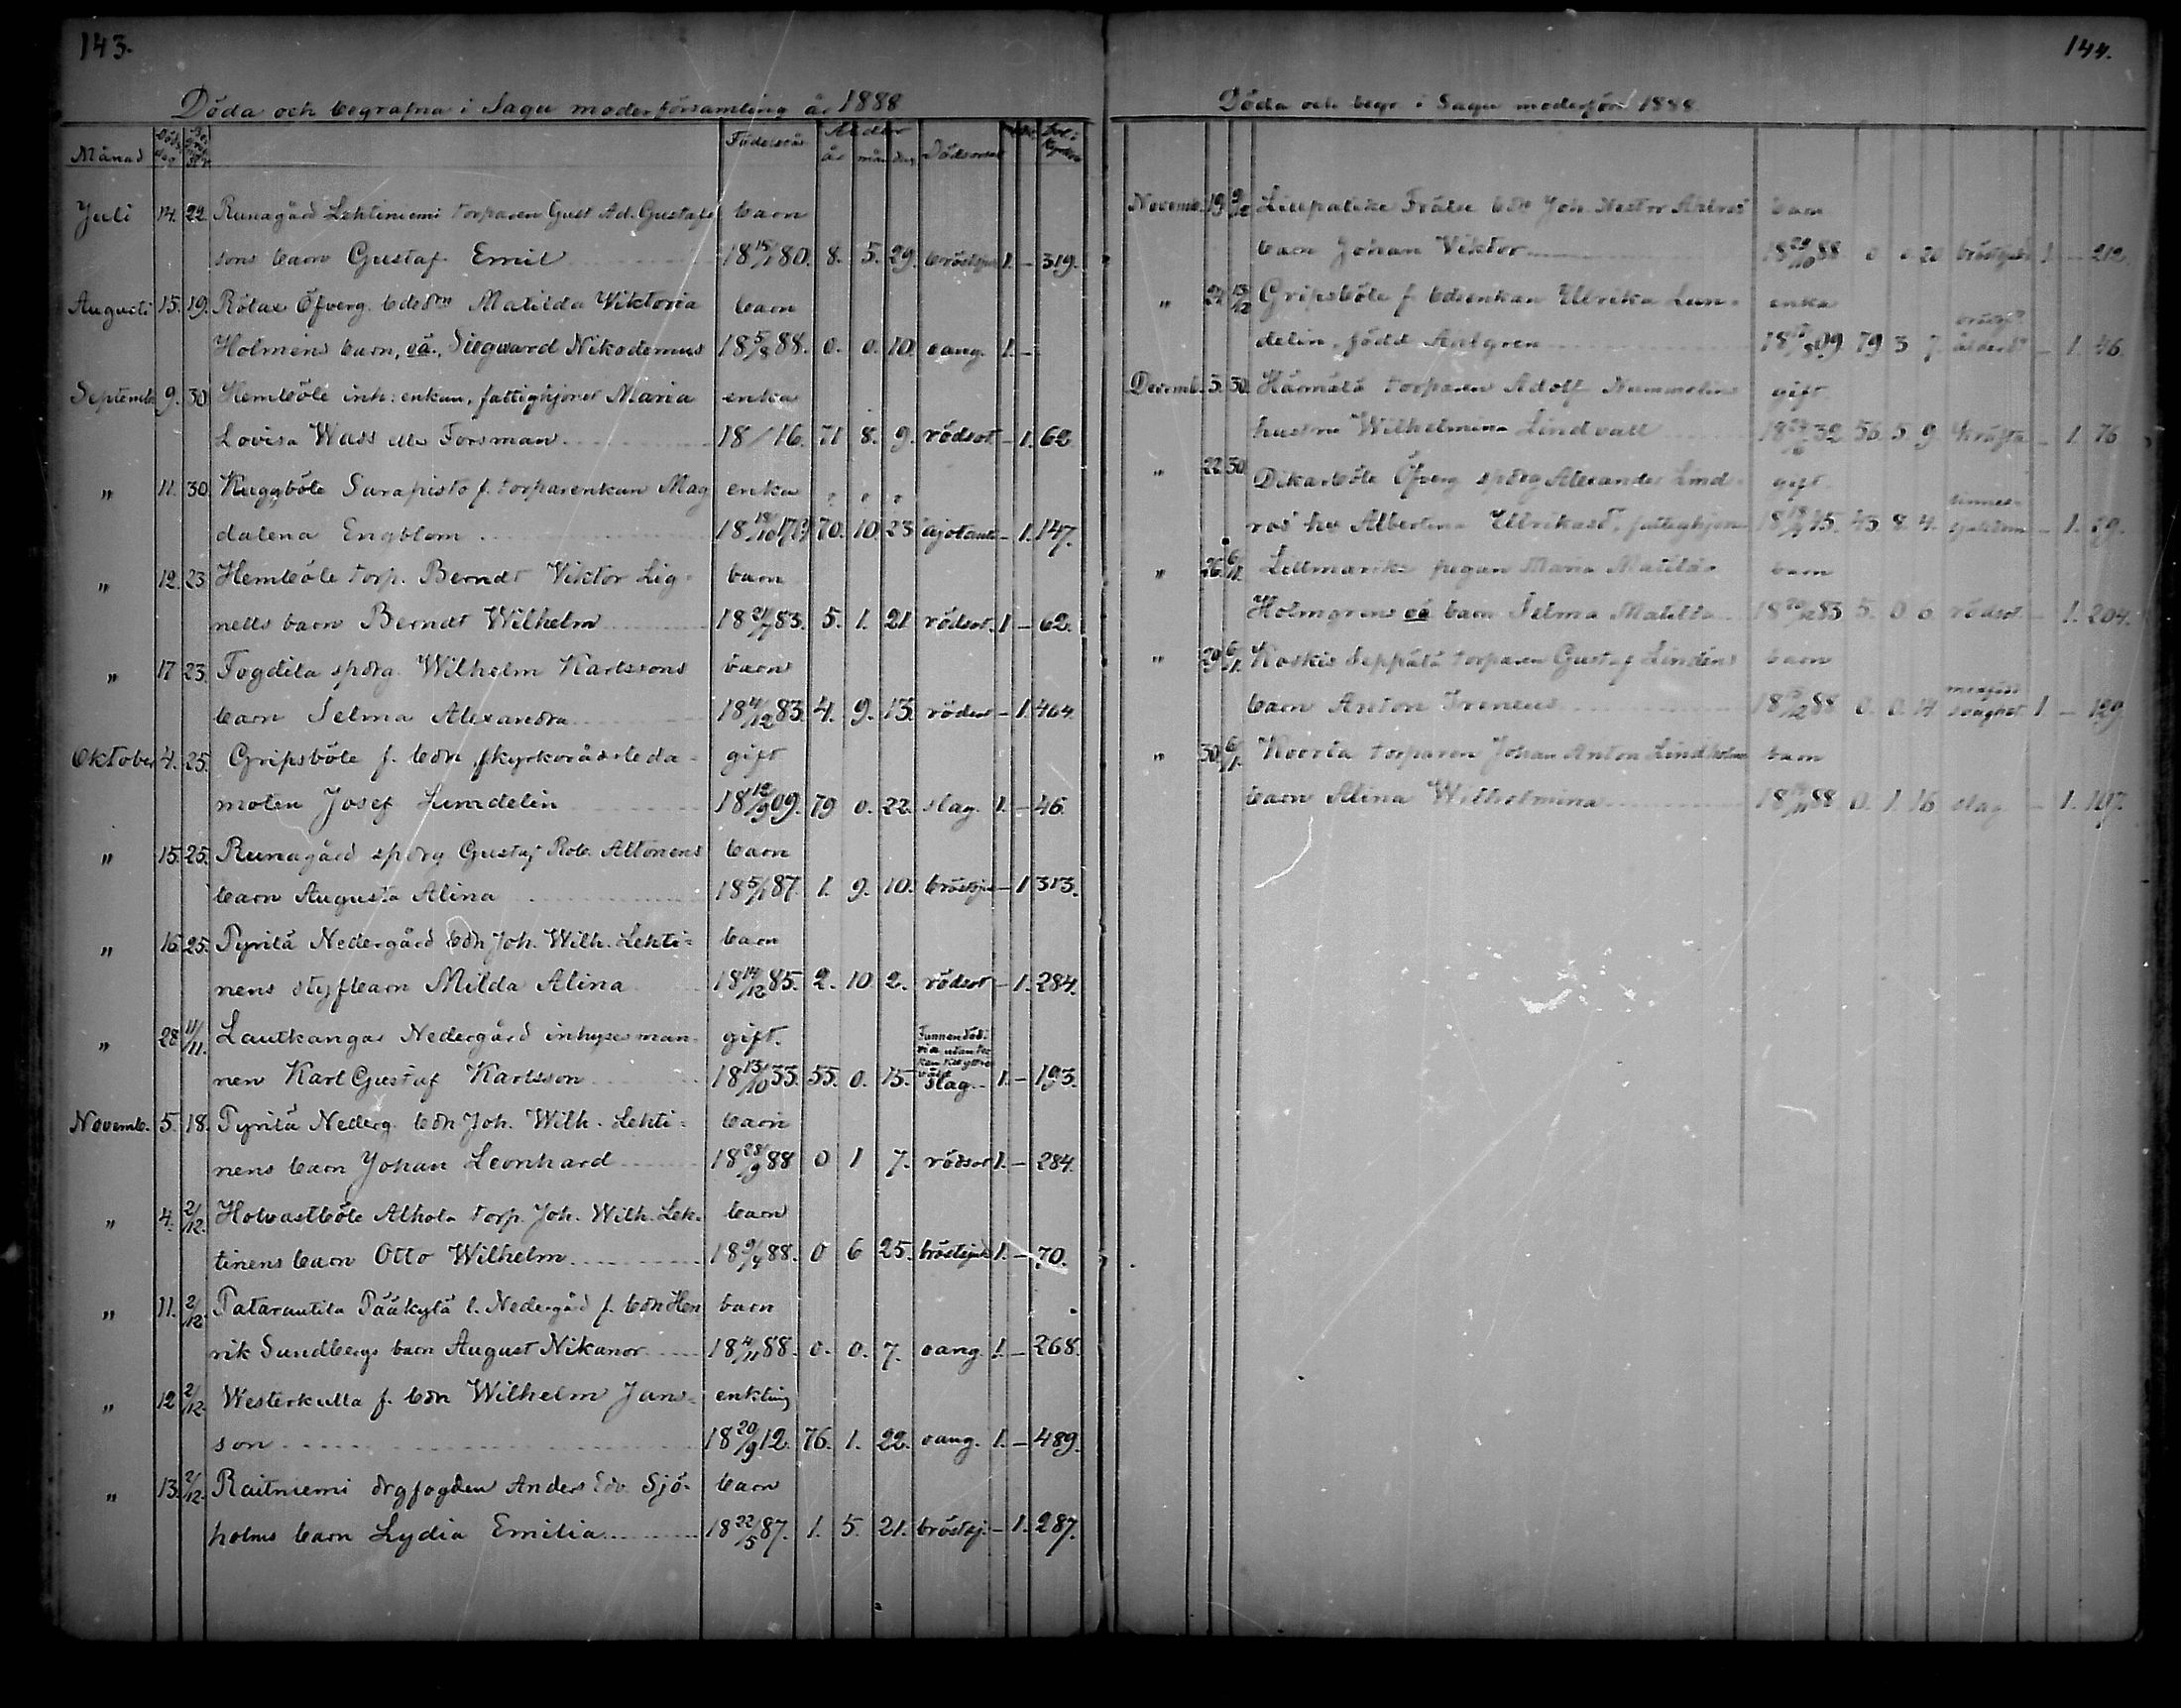 143.
Döda och begrafna i Sagu moderförsamling år 1888
Månad Födelseår Ålder år mån dag
Juli 14. 22. Runagård Lehtiniemi torparen Gust. Ad. Gustafs barn
sons barn Gustaf Emil 18 15/1 80. 8. 5. 29. bröstsjuk 1. – 319.
Augusti 15. 19. Rölax Öfverg. Matilda Viktoria barn
Holmens barn, oä., Siegward Nikodemus 18 5/8 88. 0. 0. 10. oang. 1. –
Septemb. 9. 30. Hemböle inh: enkan, fattighjonet Maria enka
Lovisa Wass Forsman 18/16. 71 8. 9. rödsot – 1. 62.
" 11. 30. Kuggböle Sarapisto f. torparenkan Mag enka
dalena Engblom 70. 10. 23 – 1. 147.
" 12. 23. Hemböle torp. Berndt Viktor Lig- barn
nells barn Berndt Wilhelm 18 21/7 83. 5. 1. 21 rödsot. 1 – 62.
" 17 23. Fogdila spbrg. Wilhelm Karlssons barn
barn Selma Alexandra 18 4/12 83. 4. 9. 13. rödsot – 1. 464.
Oktober 4. 25. Gripsböle f. bdn, f kyrkorådsleda- gift
moten Josef Lundelin 18 12/9 09. 79 0. 22. slag. 1. – 46.
" 15. 25. Runagård spbrg Gustaf Rob. Altonens barn
barn Augusta Alina 18 5/1 87. 1. 9. 10. bröstsjuk – 1 313.
" 16 25. Pyrilä Nedergård bdn Joh. Wilh. Lehti= barn
nens styfbarn Milda Alina 18 14/12 85. 2. 10 2. rödsot – 1. 284.
" 28 11/11. Lautkangas Nedergård inhysesman- gift.
nen Karl Gustaf Karlsson 18 13/10 33. 55. 0. 15. slag. 1. – 193.
Novemb. 5. 18. Pyrilä Nederg. bdn Joh. Wilh. Lehti= barn
nens barn Johan Leonhard 18 28/9 88 0 1 7. rödsot 1. – 284.
" 4. 2/12. Holvastböle Alhola torp. Joh. Wilh. Leh- barn
tinens barn Otto Wilhelm 18 9/4 88. 0 6 25. bröstsjuk 1. – 70.
" 11. 2/12. Patarautila Pääkylä l. Nedergård f. bdn Hen barn
rik Sundbergs barn August Nikanor 18 4/11 88. 0. 0. 7. oang. 1. – 268.
" 12 2/12. Westerkulla f. bdn Wilhelm Jans- enkling
son 18 20/9 12. 76. 1. 22. oang. 1. – 489.
" 13. 2/12. Raitniemi drgfogden Anders Edv. Sjö- barn
holms barn Lydia Emilia 18 22/5 87. 1. 5. 21. bröstsj. – 1. 287.
144.
Döda och begr i Sagu moderförs 1888
Novemb. 19 9/12 Frälse bdn Joh. Nestor barn
barn Johan Viktor 18 29/10 88 0 0 20 bröstsjuk 1 – 212.
" Gripsböle f bdsenkan Ulrika Lun- enka
delin, född Ahlgren 79 3 7. – 1. 46.
Decemb. 3. 30. Härmälä torparen Adolf Nummelins gift
hustru Wilhelmina Lindvall 56. 5 9. kräfta – 1. 76
" 22 30. Dikarböle Öfverg spbrg Alexander Lind- gift.
ros' hu Albertina Ulrikasd., fattighjon 43 8. 4. – 1.
" 26. 6/1. Lillmarks pigan Maria Matilda barn
Holmgrens oä barn Selma Matilda 5. 0 0. rödsot – 1. 204.
" 29 6/1. Koskis Seppälä torparen Gustaf Lindéns barn
barn Anton Ireneus 0. 0. svaghet 1. – 129
" 30 6/1. Koorla torparen Johan Anton Lindholms barn
barn Alina Wilhelmina 0. 1. 16 slag – 1.